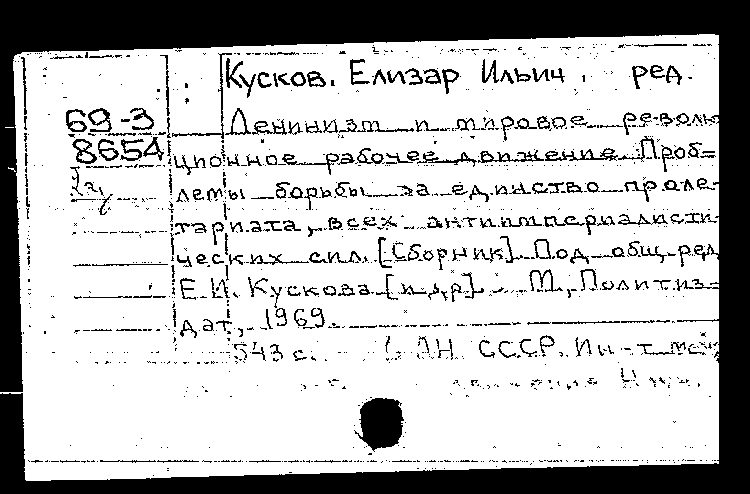 Кусков, Елизар Ильич, ред.
69-3
8654
Ленинизм и мировое револю
ционное рабочее движение. Проб=
лемы борьбы за единство проле-
тариата, всех антиимпериалисти
ческих сил. [Сборник]. Под общ. ред
Е. И. Кускова [и др.]. М., Политиз=
дат, 1969.
543 с. АН СССР. Ин-т